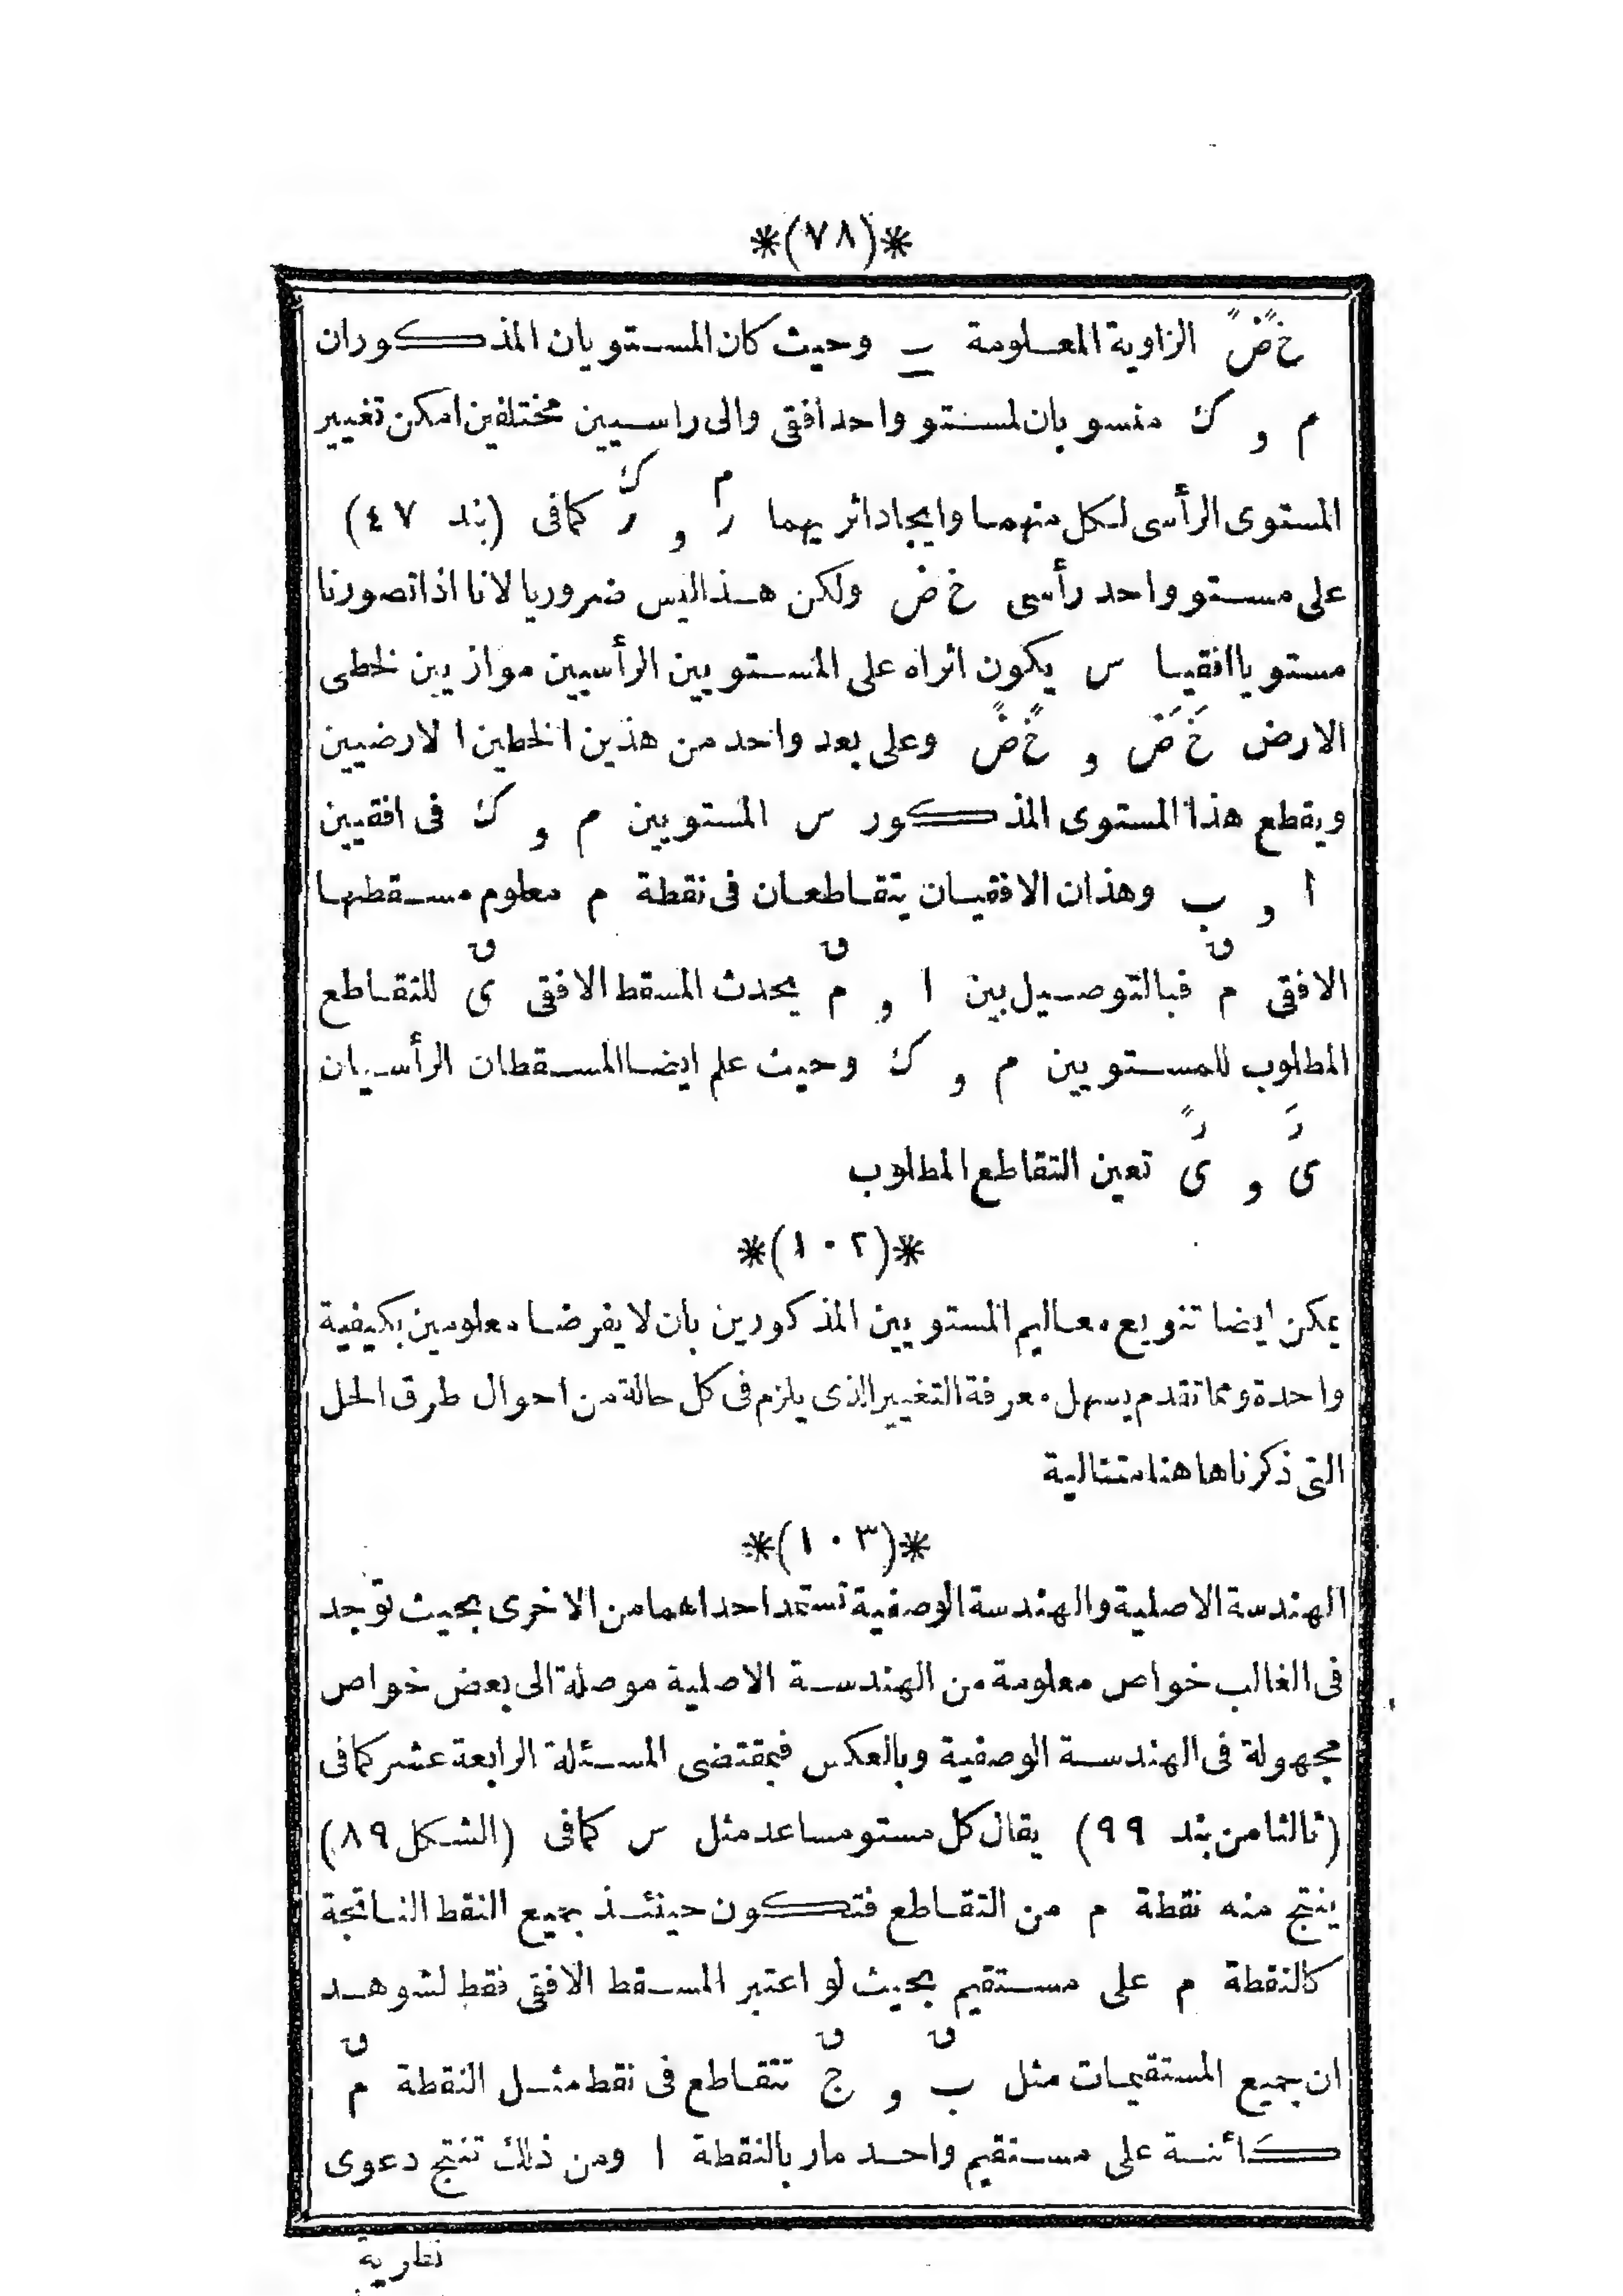 *(٧٨)*
خً ضً الزاوية المعلومة ب وحيث كان المستويان المذكوران
م و ك منسوبان لمستو واحد افقى والى راسيين مختلفين امكن تغيير
المستوى الرأسى لكل منهما وايجاد اثريهما رم و رك كمافى (بند ٤٧)
على مستو واحد رأسى خ ض ولكن هذا ليس ضروريا لانا اذا تصورنا
مستويا افقيا س يكون اثراه على المستويين الرأسيين موازيين لخطى
الارض خَ ضَ و خً ضً وعلى بعد واحد من هذين الخطين الارضيين
ويقطع هذا المستوى المذكور س المستويين م و ك فى افقيين
ا و ب وهذان الافقيان يتقاطعان فى نقطة م معلوم مسقطها
الافقى مق فبالتوصيل بين ا و مق يحدث المسقط الافقى ىق للتقاطع
المطلوب للمستويين م و ك وحيث علم ايضا المسقطان الرأسيان
ىرَ و ىرً تعين التقاطع المطلوب
*(١٠٢)*
يمكن ايضا تنويع معاليم المستويين المذكورين بان لا يفرضا معلومين بكيفية
واحدة ومما تقدم يسهل معرفة التغيير الذى يلزم فى كل حالة من احوال طرق الحل
التى ذكرناها هنا متتالية
*(١٠٣)*
الهندسة الاصلية والهندسة الوصفية تستمد احداهما من الاخرى بحيث توجد
فى الغالب خواص معلومة من الهندسة الاصلية موصلة الى بعض خواص
مجهولة فى الهندسة الوصفية وبالعكس فبمقتضى المسئلة الرابعة عشر كمافى
(ثالثا من بند ٩٩) يقال كل مستو مساعد مثل س كمافى (الشكل ٨٩)
ينتج منه نقطة م من التقاطع فتكون حينئذ جميع النقط الناتجة
كالنقطة م على مستقيم بحيث لو اعتبر المسقط الافقى فقط لشوهد
ان جميع المستقيمات مثل بق و جق تتقاطع فى نقط مثل النقطة مق
كائنة على مستقيم واحد مار بالنقطة ا ومن ذلك تنتج دعوى
نظرية